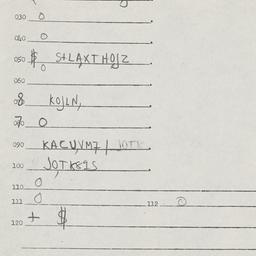 030 O
040 O
050 $ S+LAXTHOJZ
O
060
8 KOJLN,
7 O
090 KACUVM7/ JOTK
100 JOTK81S
110 O
111 O 112 O
120 + $